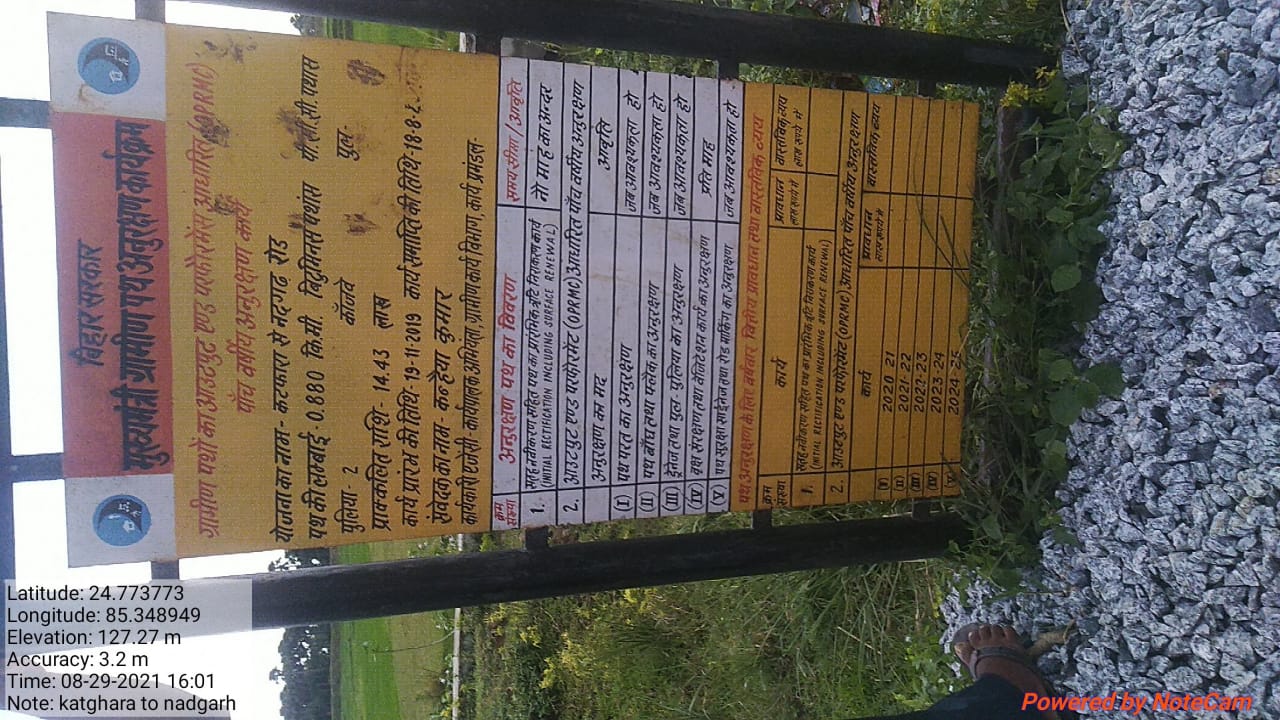 बिहार सरकार
मुख्यमंत्री ग्रामीण पथ अनुरक्षण कार्यक्रम
ग्रामीण पथों का आउटपुट एण्ड परफोरमेंस आधारित (OPRMC)
पाँच वर्षीय अनुरक्षण कार्य
योजना का नाम - कटघारा से नदगढ़ रोड
पथ की लम्बाई - 0.880 कि.मी. बिटुमिनस पथांश पी.सी.सी. पथांश
पुलिया - 2 कॉजवे पुल -
प्राक्कलित राशि - 14.43 लाख
कार्य प्रारंभ की तिथि - 19-11-2019 कार्य समाप्ति की तिथि - 18-8-2
संवेदक का नाम कन्हैया कुमार
कार्यकारी एजेंसी - कार्यपालक अभियंता, ग्रामीण कार्य विभाग, कार्य प्रमंडल -
क्रम संख्या अनुरक्षण पथ का विवरण समय-सीमा / आवृति
1. सतह नवीकरण सहित पथ का प्रारंभिक त्रुटि निराकरण कार्य नौ माह का अन्दर
(INITIAL RECTIFICATION INCLUDING SURFACE RENEWAL)
2. आउटपुट एण्ड परफोरमेंट (OPRMC) आधारित पाँच वर्षीय अनुरक्षण
अनुरक्षण का मद आवृति
(I) पथ परत का अनुरक्षण जब आवश्यकता हो
(II) पथ बाँध तथा फ्लैंक का अनुरक्षण जब आवश्यकता हो
(III) ड्रेनेज तथा पुल पुलिया का अनुरक्षण जब आवश्यकता हो
(IV) वृक्ष संरक्षण तथा वेजिटेशन कार्य का अनुरक्षण प्रति माह
(V) पथ सुरक्षा साईनेज तथा रोड मार्किंग का अनुरक्षण जब आवश्यकता हो
पथ अनुरक्षण के लिए वर्षवार वित्तीय प्रावधान तथा वास्तविक व्यय
क्रम संख्या कार्य प्रावधान लाख रुपये में वास्तविक व्यय लाख रुपये में
1. सतह नवीकरण सहित पथ का प्रारंभिक त्रुटि निराकरण कार्य
(INITIAL RECTIFICATION INCLUDING SURFACE RENEWAL)
2. आउटपुट एण्ड परफोरमेंट (OPRMC) आधारित पाँच वर्षीय अनुरक्षण
कार्य प्रावधान लाख रुपये में वास्तविक व्यय
(I) 2020 21
(II) 2021-22
(III) 2022-23
(IV) 2023-24
(V) 2024-25
Latitude: 24.773773
Longitude: 85.348949
Elevation: 127.27 m
Accuracy: 3.2 m
Time: 08-29-2021 16:01
Note: katghara to nadgarh
Powered by NoteCam